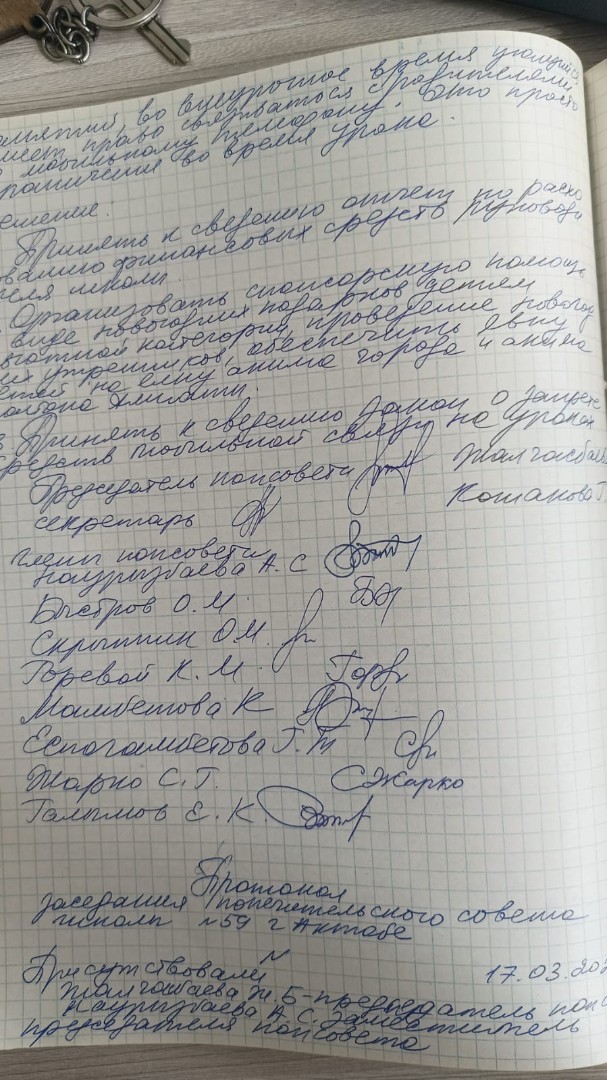 во внеурочное время учащийся
имеет право связываться с родителями
по мобильному телефону. Это просто
ограничение во время урока.
решение.
Принять к сведению отчет по расхо
дованию финансовых средств руководи
теля школы
Организовать спонсорскую помощь
в виде новогодних подарков детям
льготной категории, проведение новогод
них утренников, обеспечить явку
детей на елку акима города и акима
района Алматы.
3 Принять к сведению Закон о запрете
средств мобильной связи на уроках
Председатель попсовета Жалгасбаева
секретарь Кошанова Г
члены попсовета
Наурызбаева А. С
Быстров О. М.
Скрыпник О. М.
Горевой К. М. Гор
Мамбетова К
Еспогамбетова Г. Т
Жарко С. Г. СЖарко
Галымов Е. К.
Протокол
заседания попечительского совета
школы №59 г Актобе
Присутствовали 17.03.202
Жалгасбаева Ж. Б - председатель попс
Наурызбаева А. С. заместитель
председателя попсовета